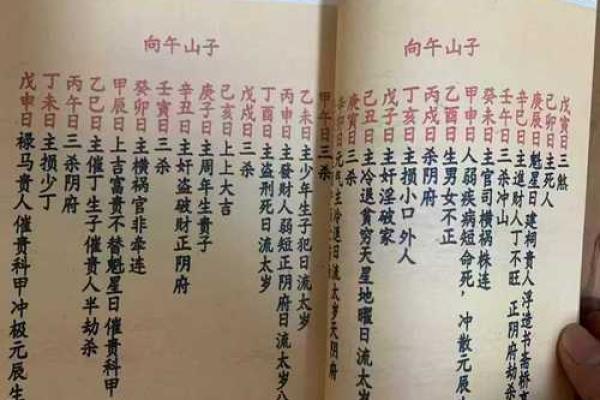 子山午向
戊寅日三煞
己卯日主死人
庚辰日魁星日建祠貴人浮造书斋桥
辛巳日主進財人丁不旺 正阴府劫杀
壬午日三杀冲山
癸未日主官司横祸株连
甲申日人弱疾病短命死，冲散元辰
乙酉日生男女不正
丙戌日杀阴府
丁亥日主损小口外人
戊子日主奸淫破家
己丑日主冷退貧穷天星地曜日流太岁
庚寅日三杀
辛卯日元气主冷退日流太岁天阴府
子山午向
甲午日三杀
乙未日主少年生子犯日流太岁
丙申日主發财人弱短正阴府日流太岁八
丁酉日主盗刑死日流太岁
戊戌日三杀
己亥日上上大吉
庚子日主周年生貴子
辛丑日主奸盗破财正阴府
壬寅日三杀
癸卯日主横祸官非牵连
甲辰日上吉富贵不替魁星日催贵科甲
乙巳日主催丁生子催贵人半劫杀
丙午日三杀阴府
丁未日主损少丁
戊申日禄马贵人催贵科甲冲极元辰生